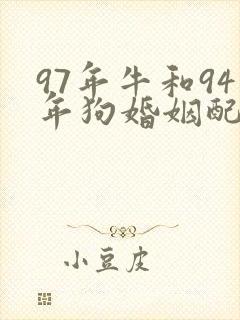 97年牛和94
年狗婚姻配
小豆皮